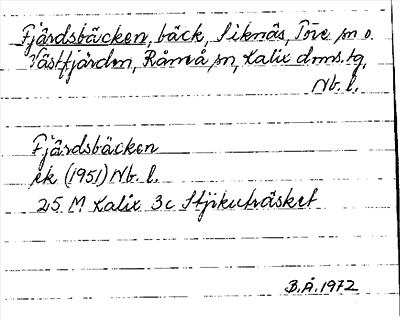 Fjärdsbäcken, bäck, Siknäs, Töre sn o.
Västfjärden, Råneå sn, Kalix doms.tg,
Nb. l.
Fjärdsbäcken
ek (1951) Nb. l.
25 M Kalix 3c Stjikuträsket
B.Å. 1972